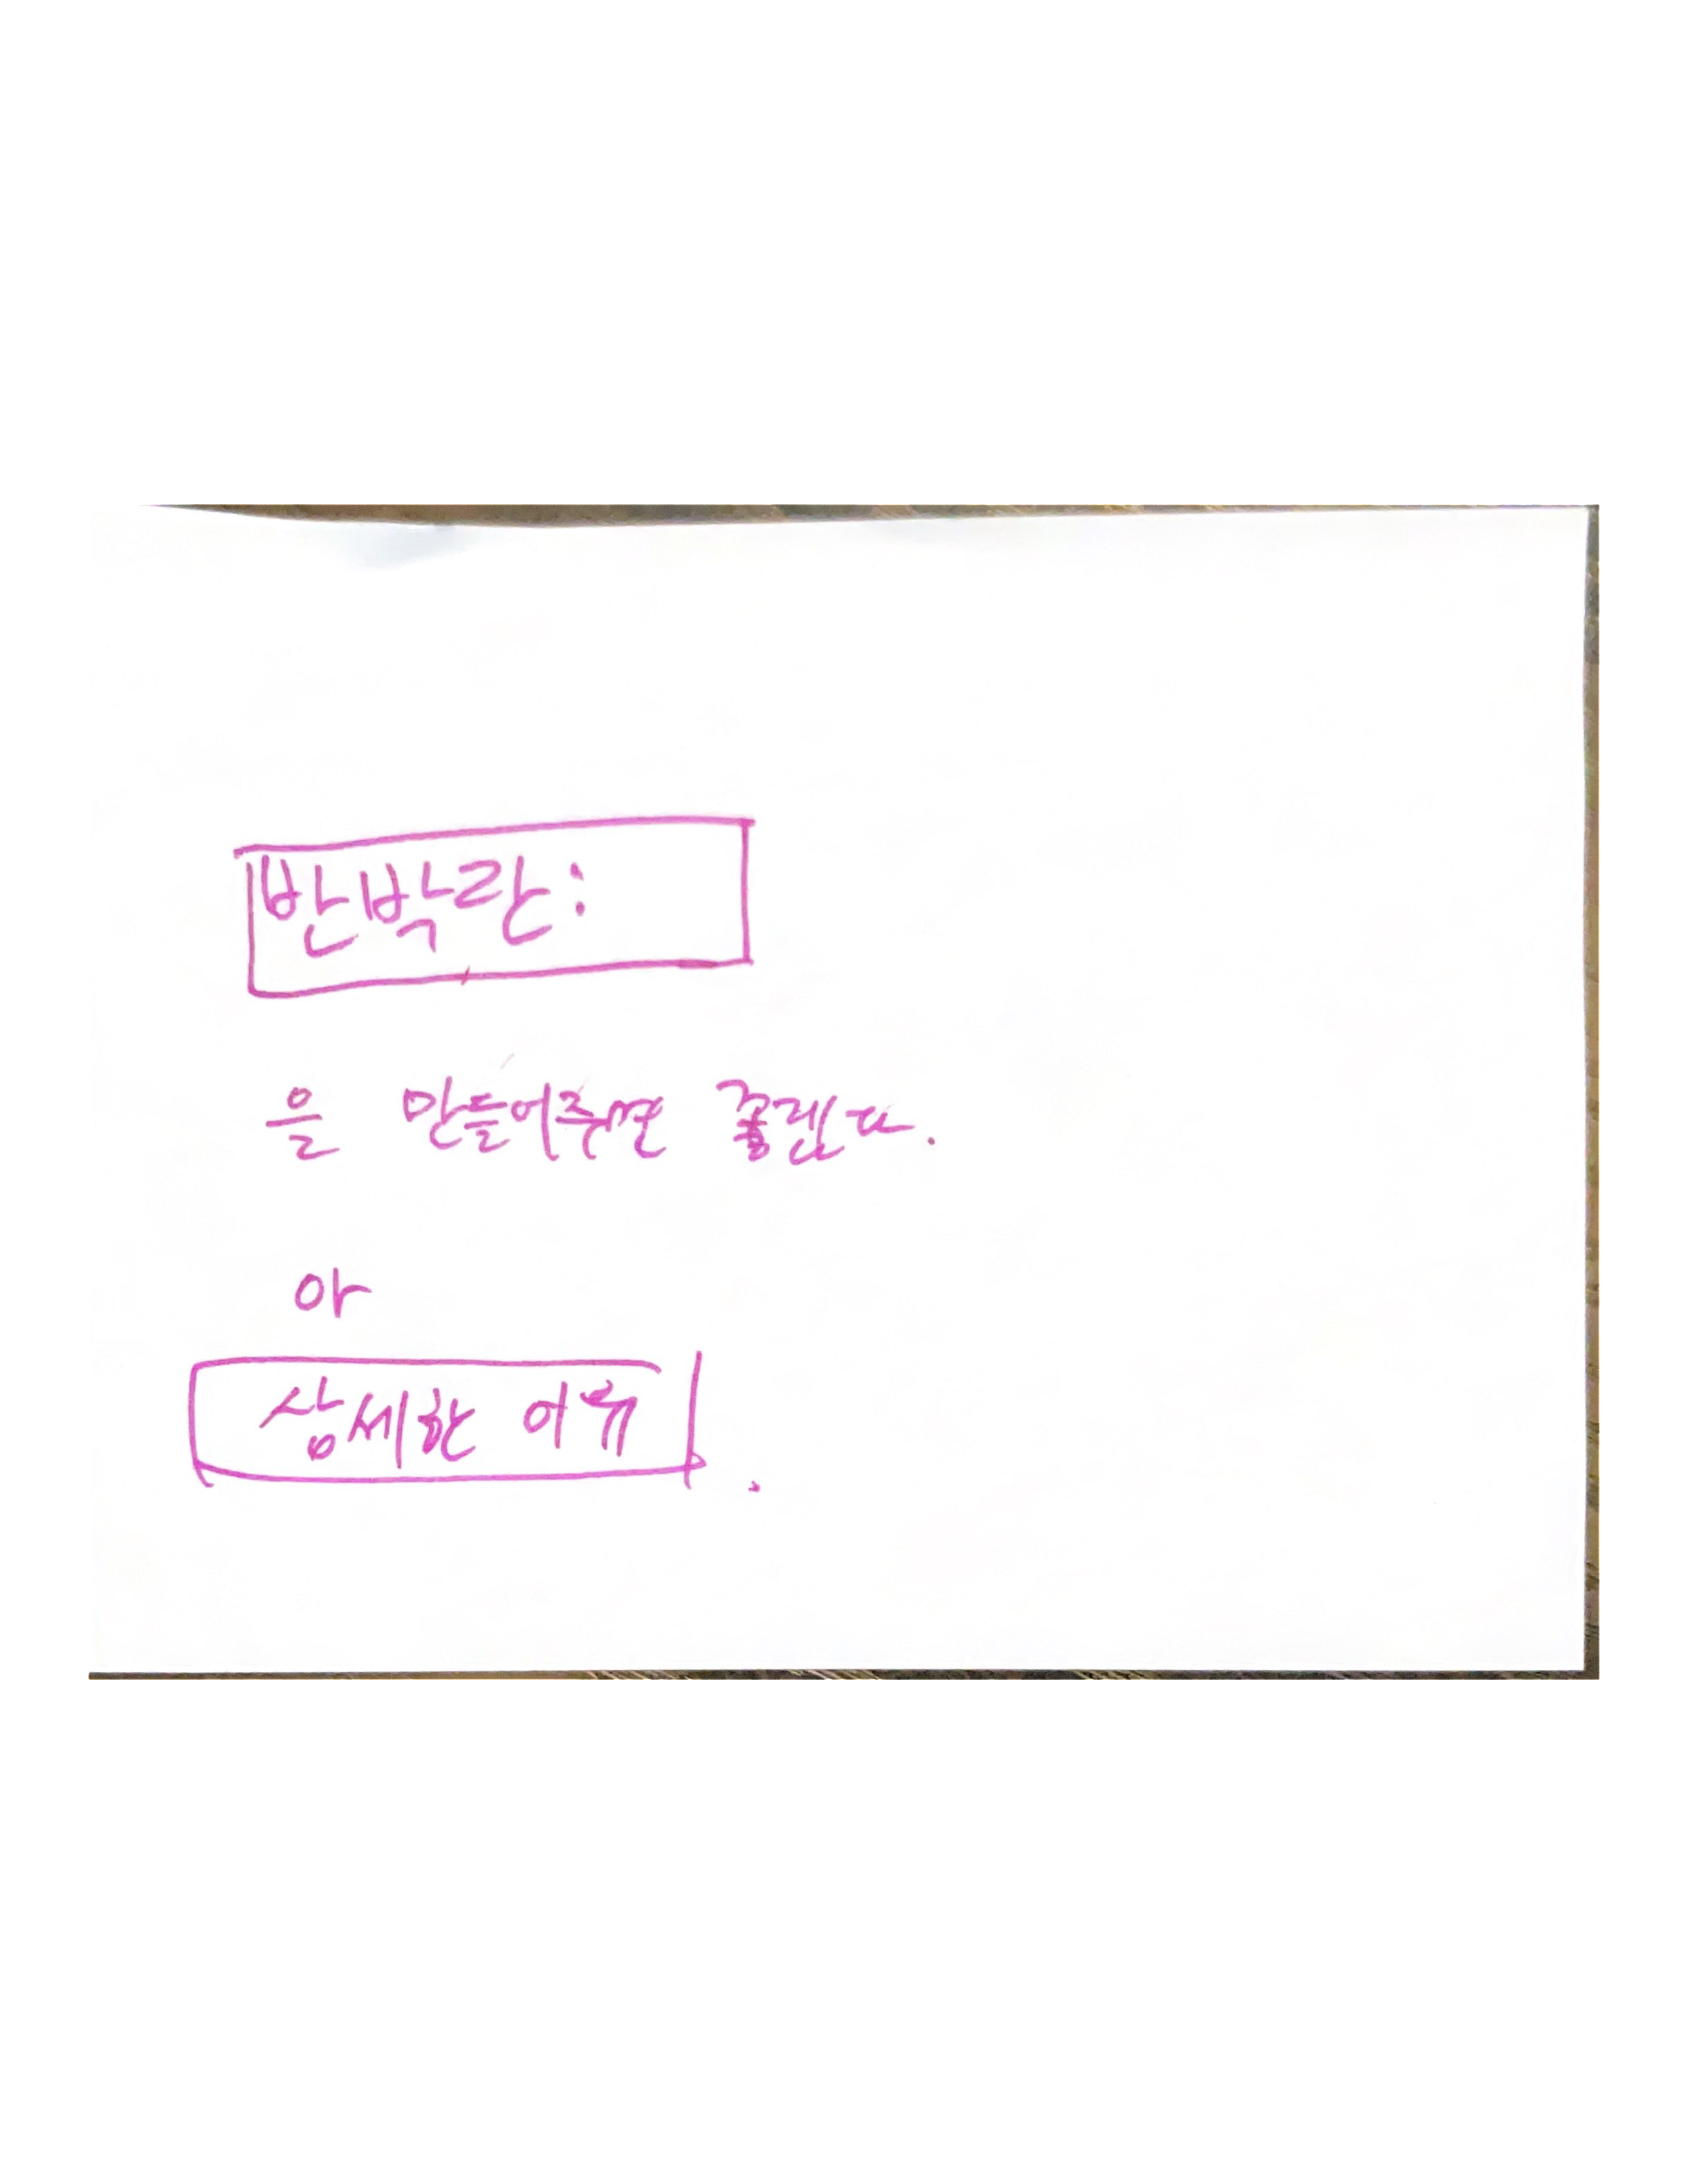 반박란:
을 만들어주면 좋겠다.
아
상세한 이유.